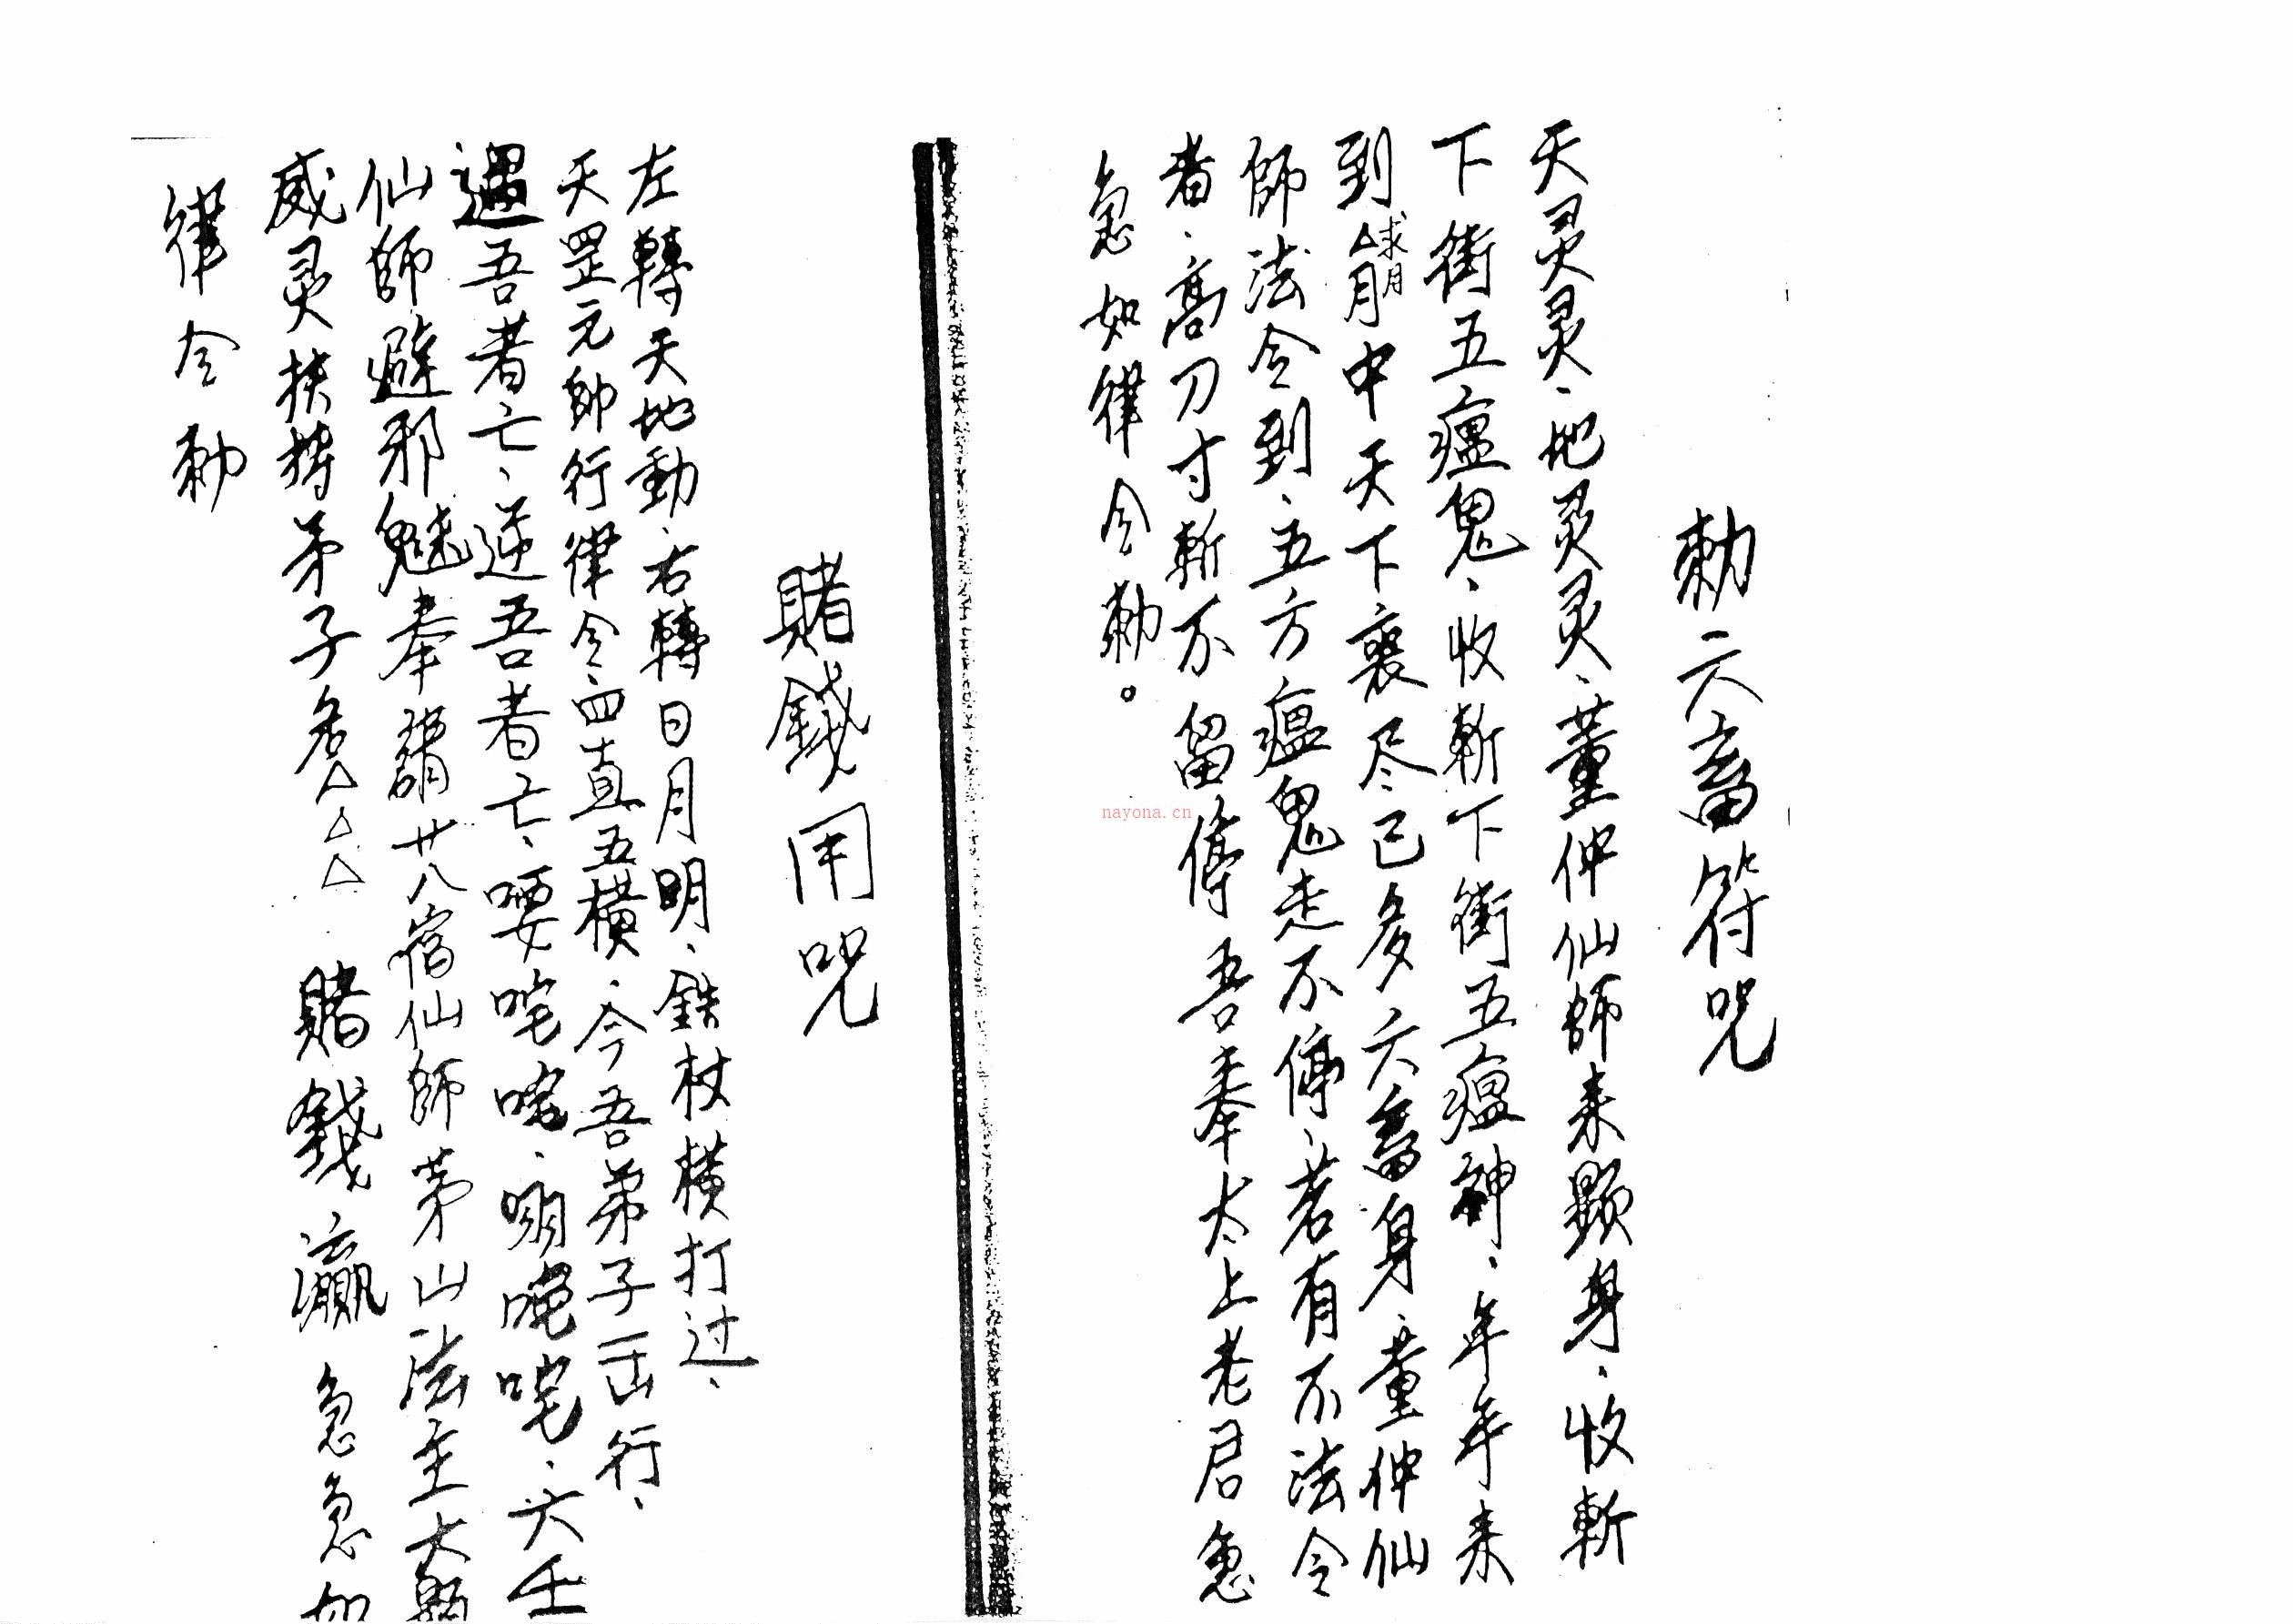 勅六畜符咒
天灵灵、地灵灵、董仲仙師来顕身、收斬
下街五瘟鬼、收斬下街五瘟神、年年来
到中天下衰尽已多六畜身、董仲仙
師法令到、五方瘟鬼走不停、若有不法令
者、高刀寸斬不留停吾奉太上老君急
急如律令勅。
nayona.cn
賭錢用咒
左轉天地動、右轉日月明、鉄杖橫打过、
天罡元帥行律令、四直五橫、今吾弟子出行、
遇吾者亡、逆吾者亡、六壬
仙師避邪魅奉廿八宿仙師茅山法主大顕
威灵扶持弟子名△△△賭錢瀛急急如
律令勅